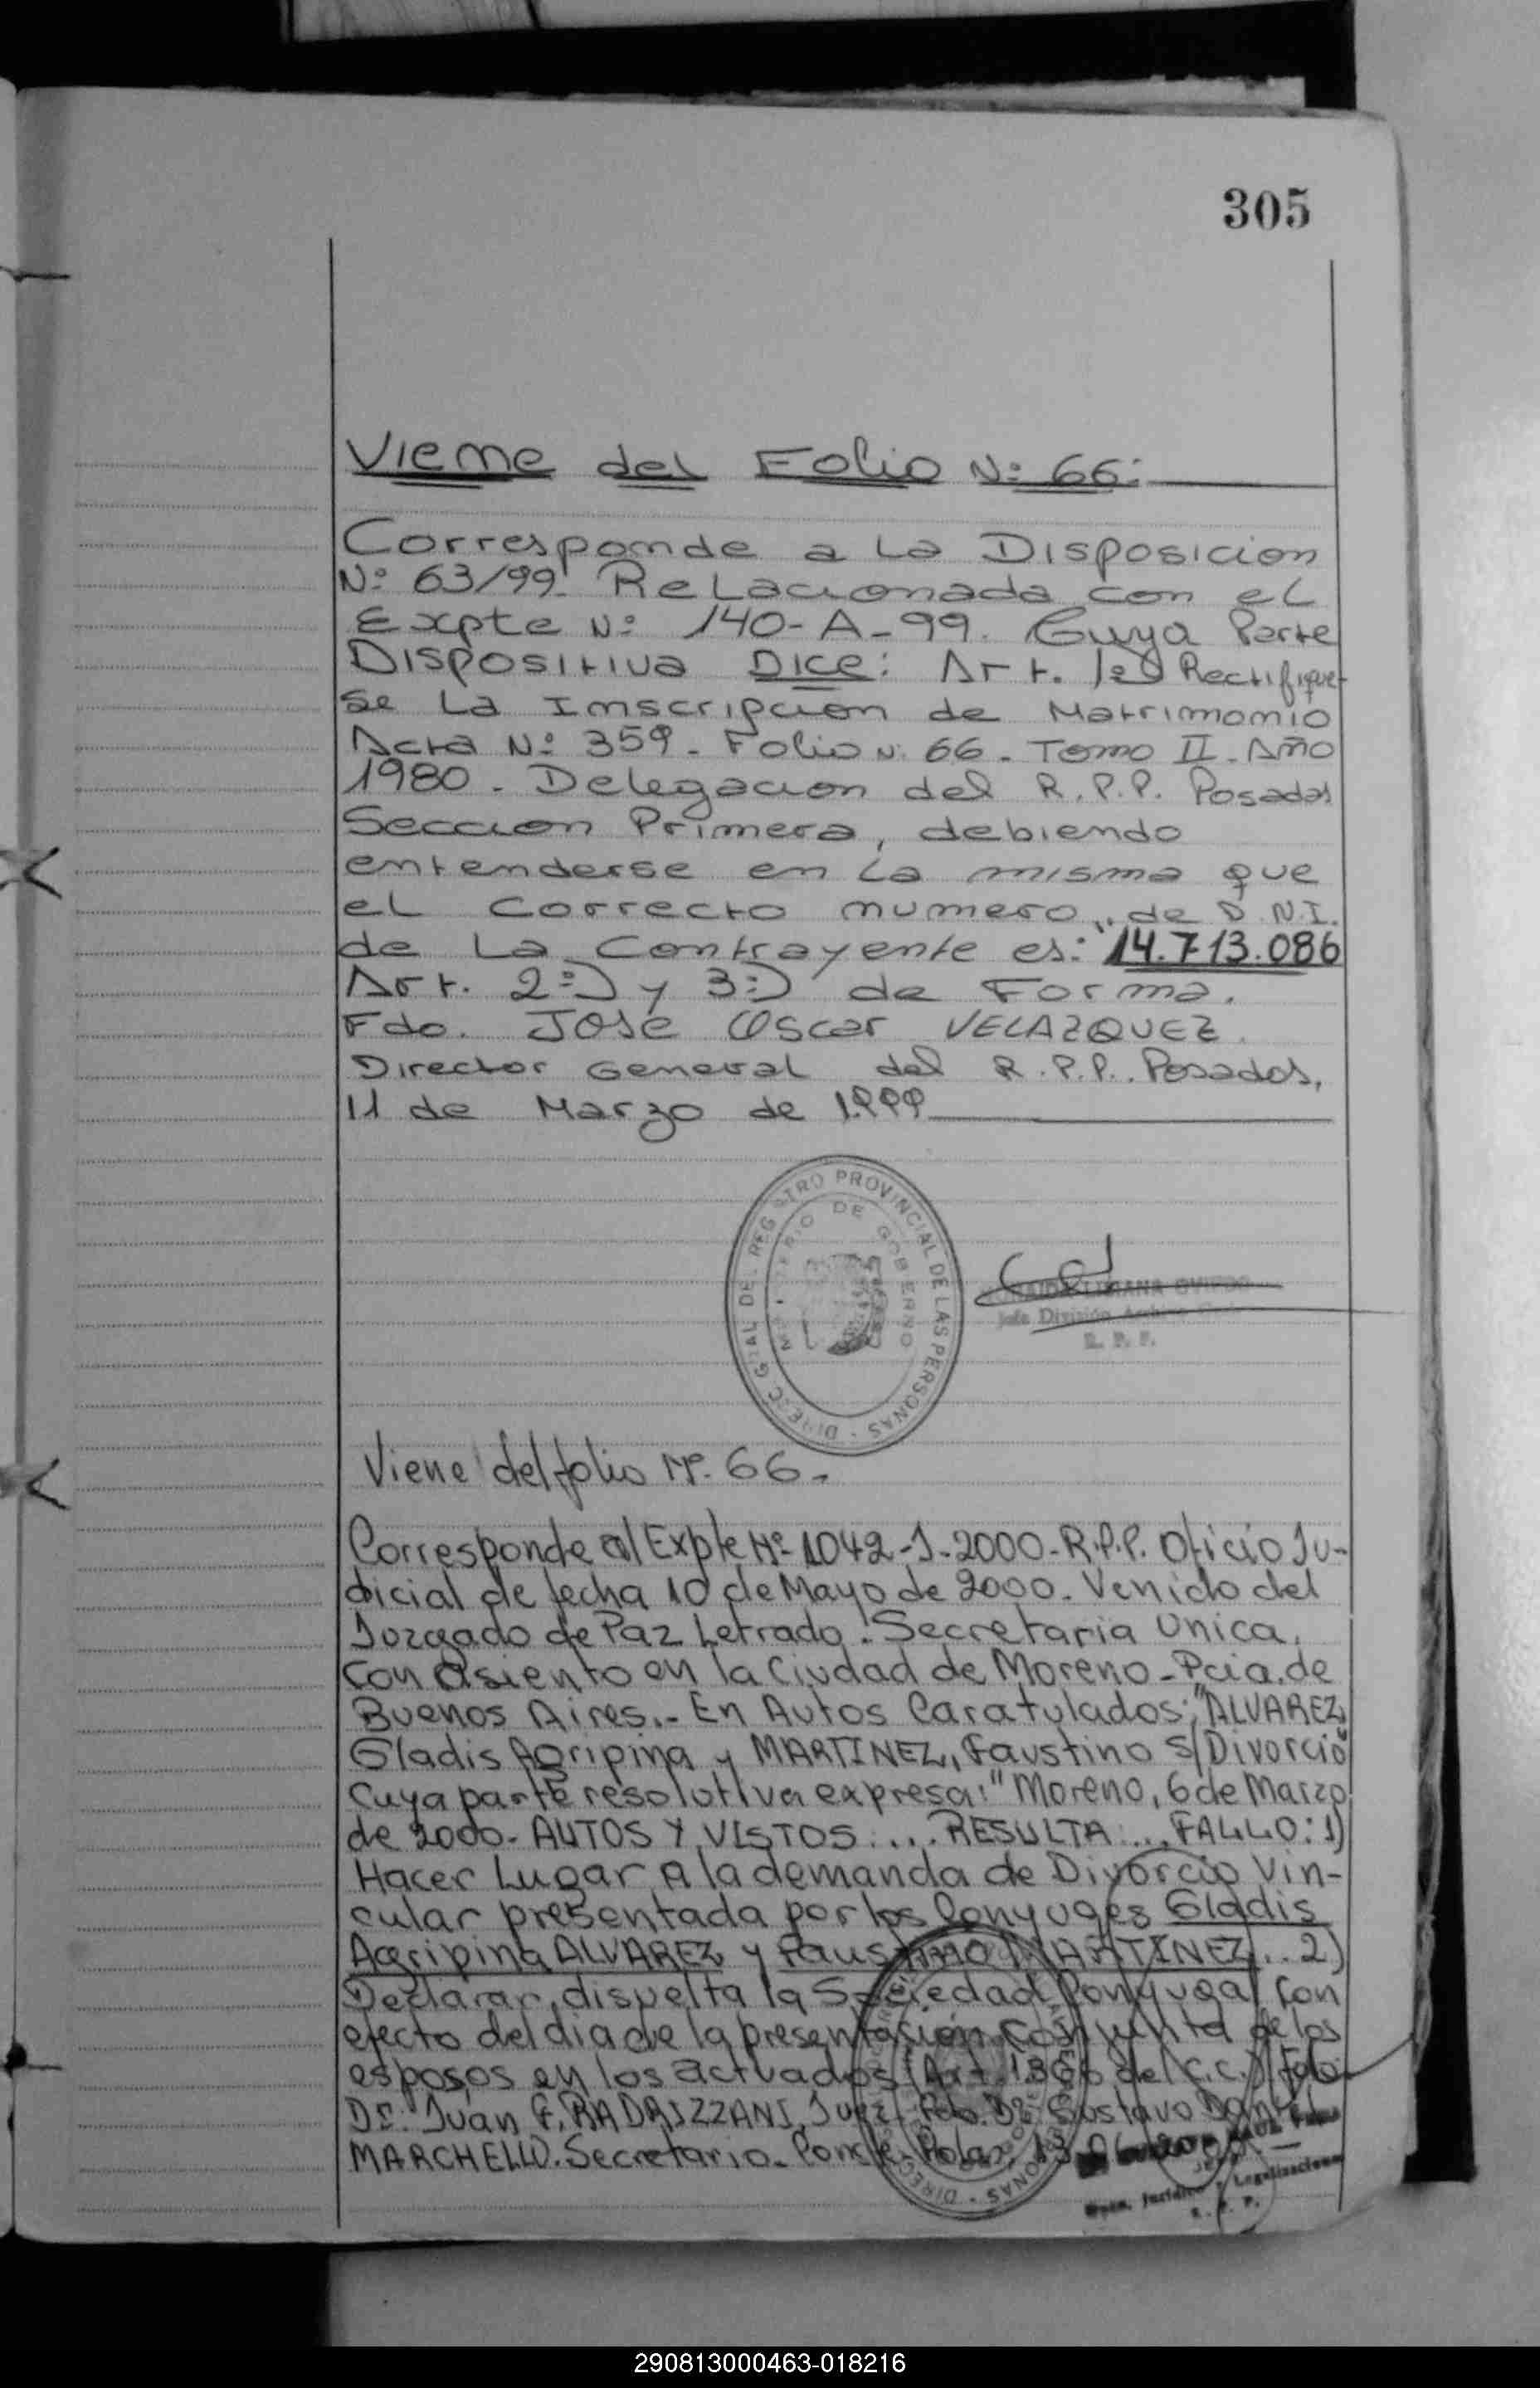 305
Viene del Folio Nº 66:
Corresponde a La Disposicion
Nº 63/99. Relacionada con el
Expte Nº 140-A-99. Cuya Parte
Dispositiva Dice: Art. 1º) Rectifique-
se La Inscripcion de Matrimonio
Acta Nº 359- Folio N. 66- Tomo II- Año
1980- Delegacion del R.P.P. Posadas
Seccion Primera, debiendo
entenderse en La misma que
el Correcto numero de D.N.I.
de La Contrayente es: "14.713.086
Art. 2º) y 3º) de Forma.
Fdo. Jose Oscar VELAZQUEZ.
Director General del R.P.P. Posadas,
11 de Marzo de 1.999
DIREC. GRAL DEL REGISTRO PROVINCIAL DE LAS PERSONAS
MINISTERIO DE GOBIERNO
LUCIANA OVIEDO
Jefe División Archivo
R. P. P.
Viene del folio Nº 66.
Corresponde al Expte Nº 1042-J-2000-R.P.P. Oficio Ju-
dicial de fecha 10 de Mayo de 2000. Venido del
Juzgado de Paz Letrado. Secretaria Unica,
con asiento en la Ciudad de Moreno-Pcia. de
Buenos Aires.- En Autos Caratulados: "ALVAREZ,
Gladis Agripina y MARTINEZ, Faustino S/Divorcio"
Cuya parte resolutiva expresa: "Moreno, 6 de Marzo
de 2000- AUTOS Y VISTOS:... RESULTA:... FALLO: 1)
Hacer Lugar A la demanda de Divorcio Vin-
cular presentada por los Conyuges Gladis
Agripina ALVAREZ y Faustino MARTINEZ... 2)
Declarar disuelta la Sociedad Conyugal con
efecto del dia de la presentación conjunta de los
esposos en los actuados (Art. 1306 del C.C.) Fdo.
Dr. Juan F. RADRIZZANI, Juez- Fdo. Dr. Gustavo Daniel
MARCHELLO. Secretario.
Dpto. Jurídico y Legalizaciones
R. P. P.
290813000463-018216